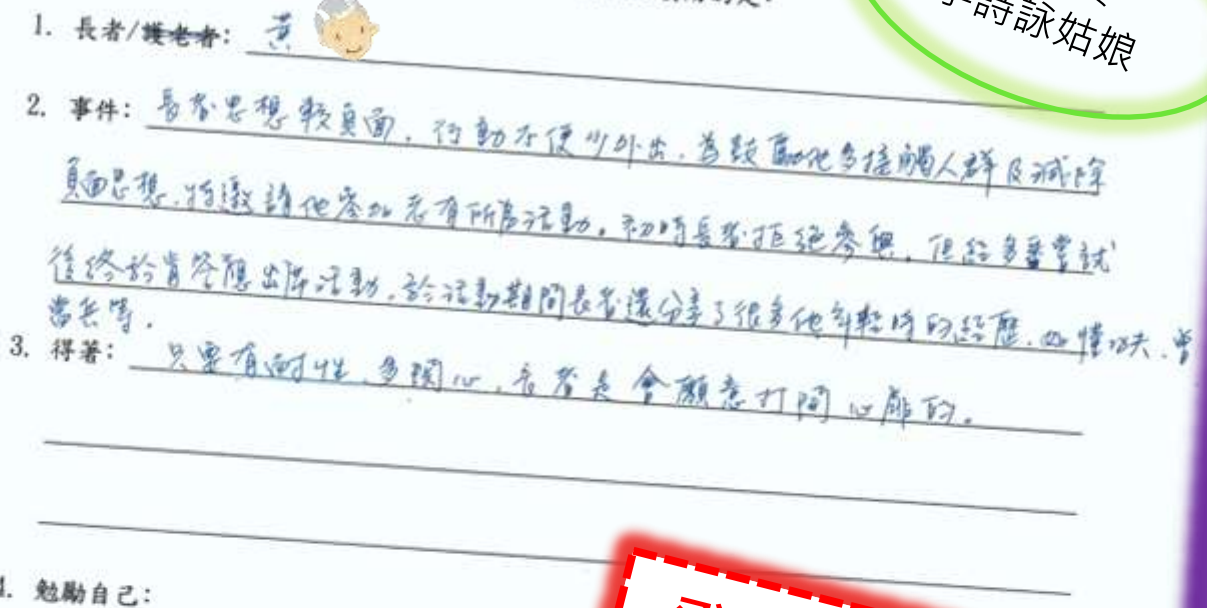 詩詠姑娘
1. 長者/護老者: 黃
2. 事件: 長者思想較負面，行動不便少外出，為鼓勵他多接觸人群及減除
負面思想，特邀請他參加老有所為活動。初時長者拒絕參與，但經多番嘗試
後終於肯答應出席活動，於活動期間長者還分享了很多他年輕時的經歷，如懂功夫、曾
當兵等。
3. 得著: 只要有耐性、多關心，長者是會願意打開心扉的。
4. 勉勵自己: